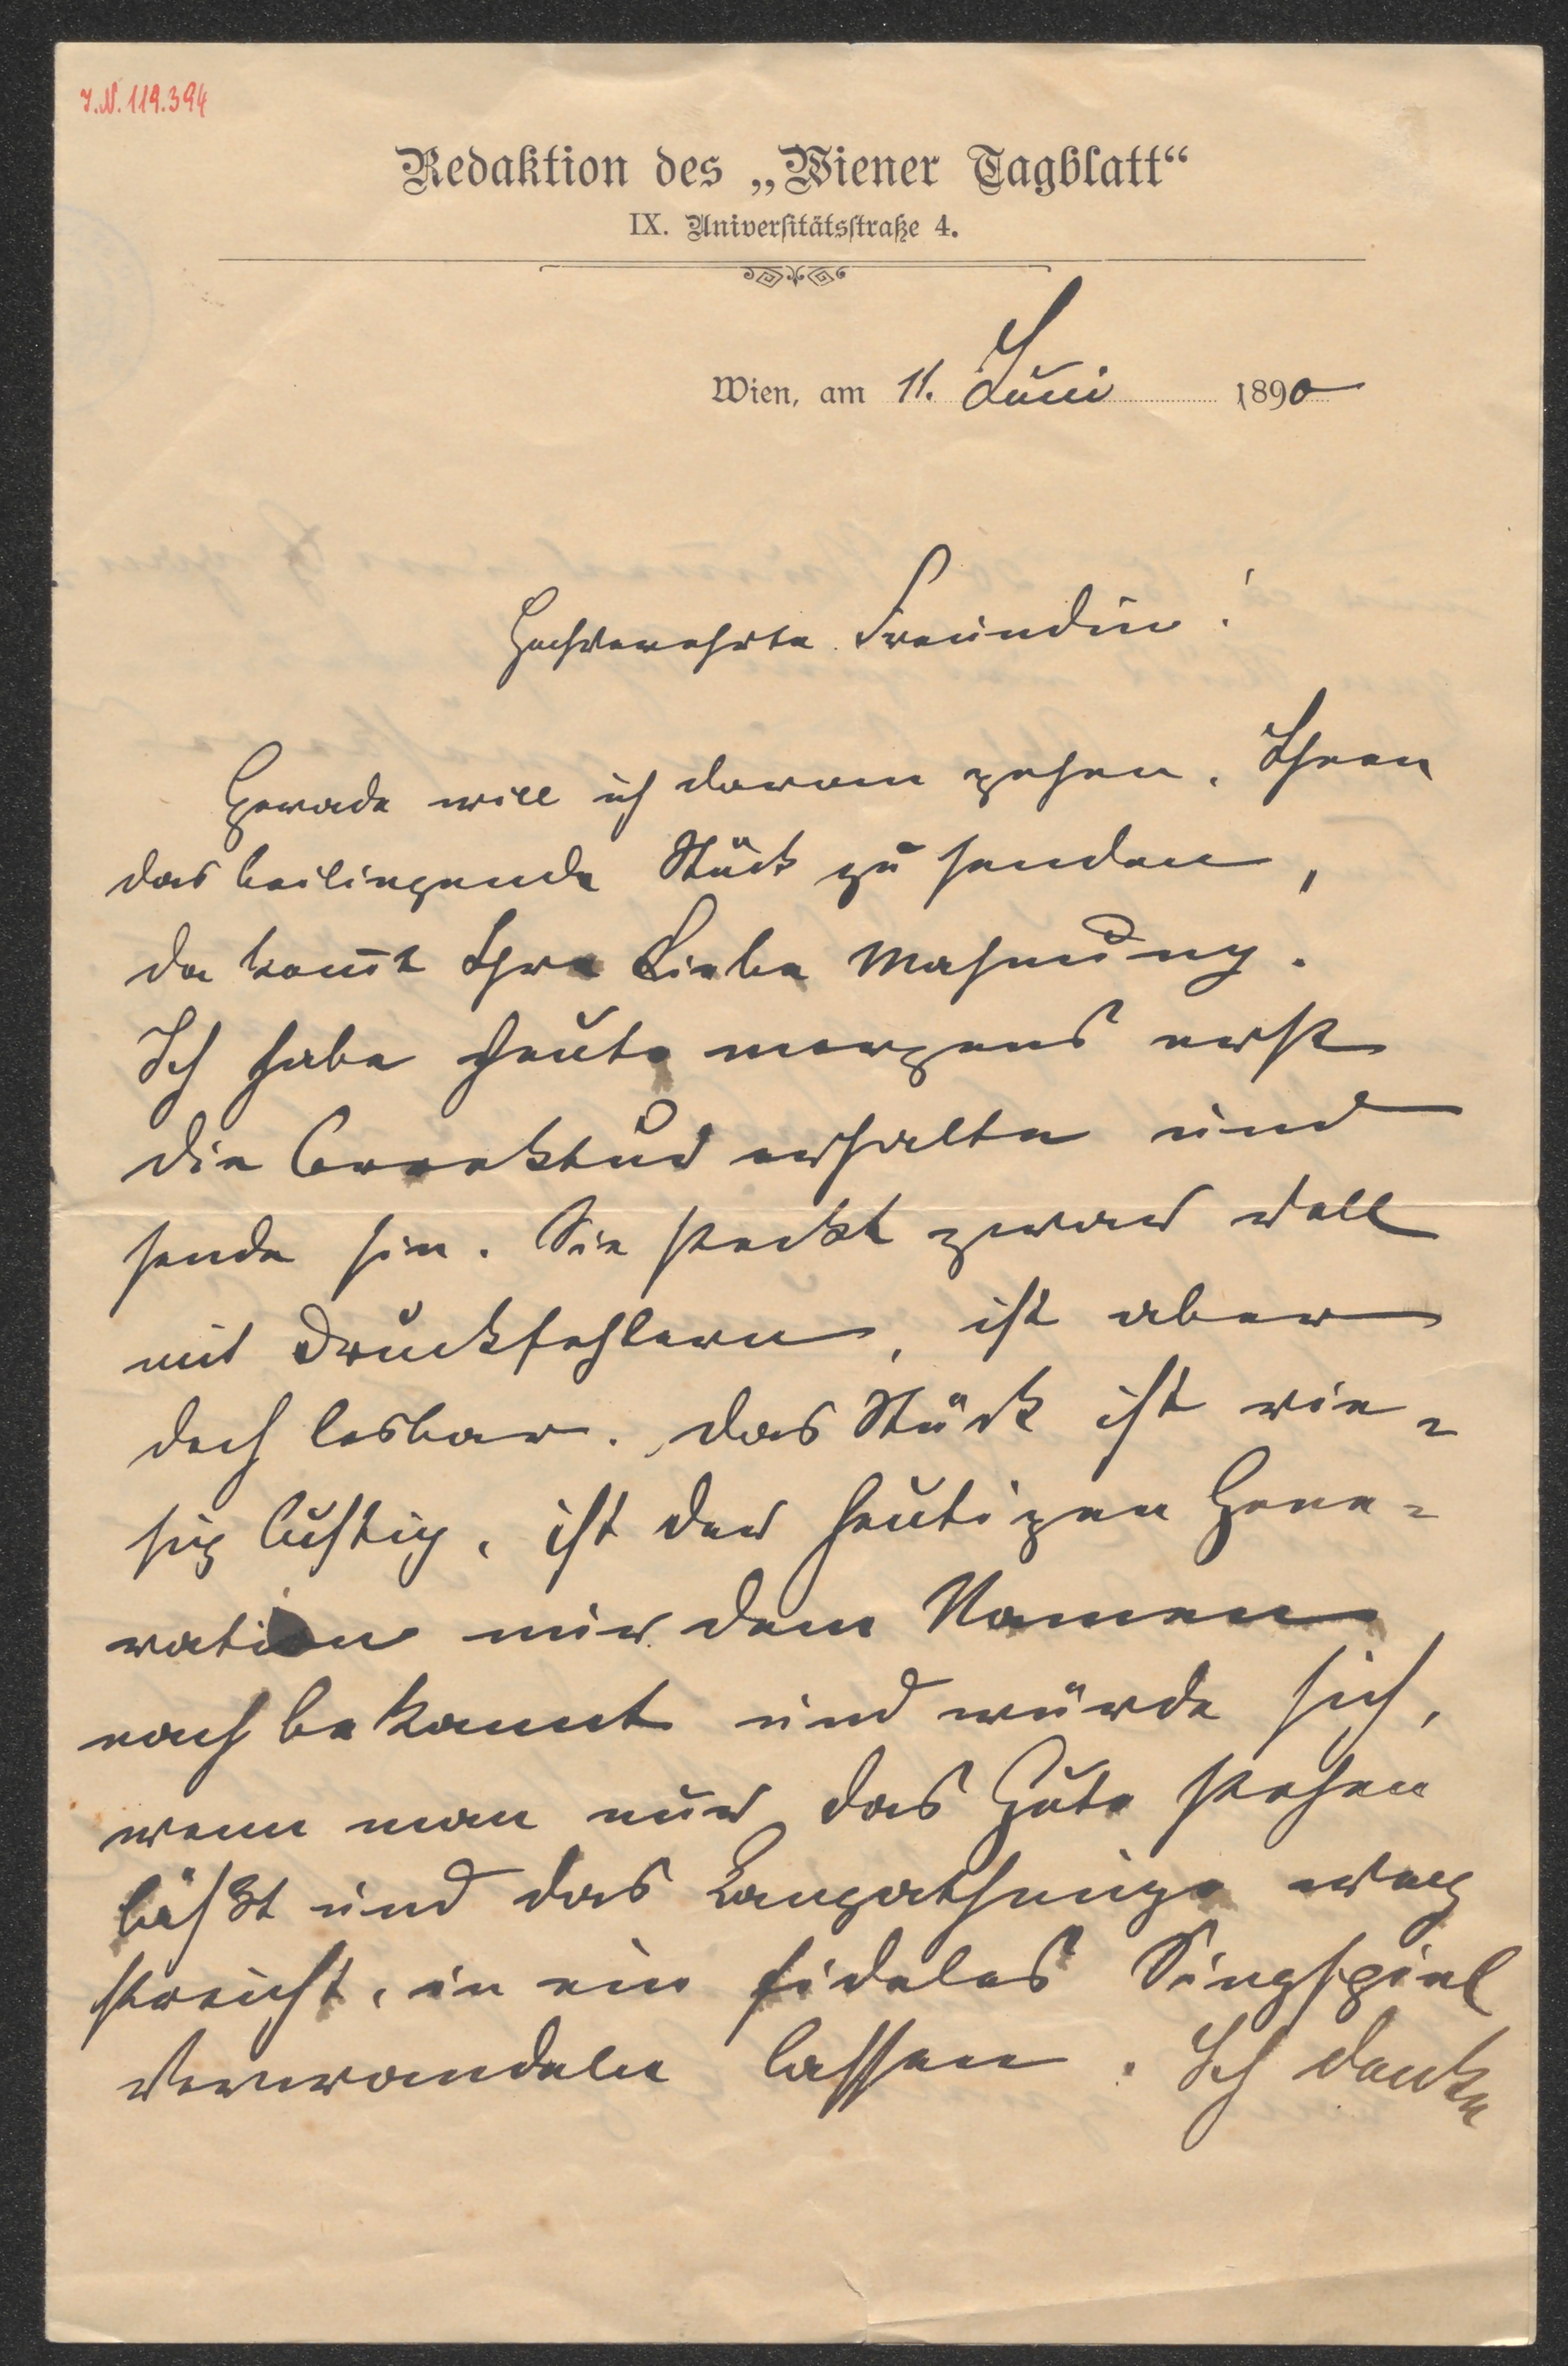 I.N. 119.394
Redaktion des „Wiener Tagblatt“
IX. Universitätsstraße 4.
Wien, am 11. Juni 1890
Hochverehrte Freundin!
Gerade will ich daran gehen, Ihnen
das beiliegende Stück zu senden,
da kom̄t Ihre Liebe Mahnung.
Ich habe heute morgens erst
die Correktur erhalten und
sende hin. Sie steckt zwar voll
mit Druckfehlern, ist aber
doch lesbar. Das Stück ist rie-
sig lustig, ist der heutigen Gene-
ration nur dem Namen
nach bekannt und würde sich,
wenn man nur das Gute stehen
läßt und das Langathmige weg
streicht, in ein fideles Singspiel
verwandeln lassen. Ich danke